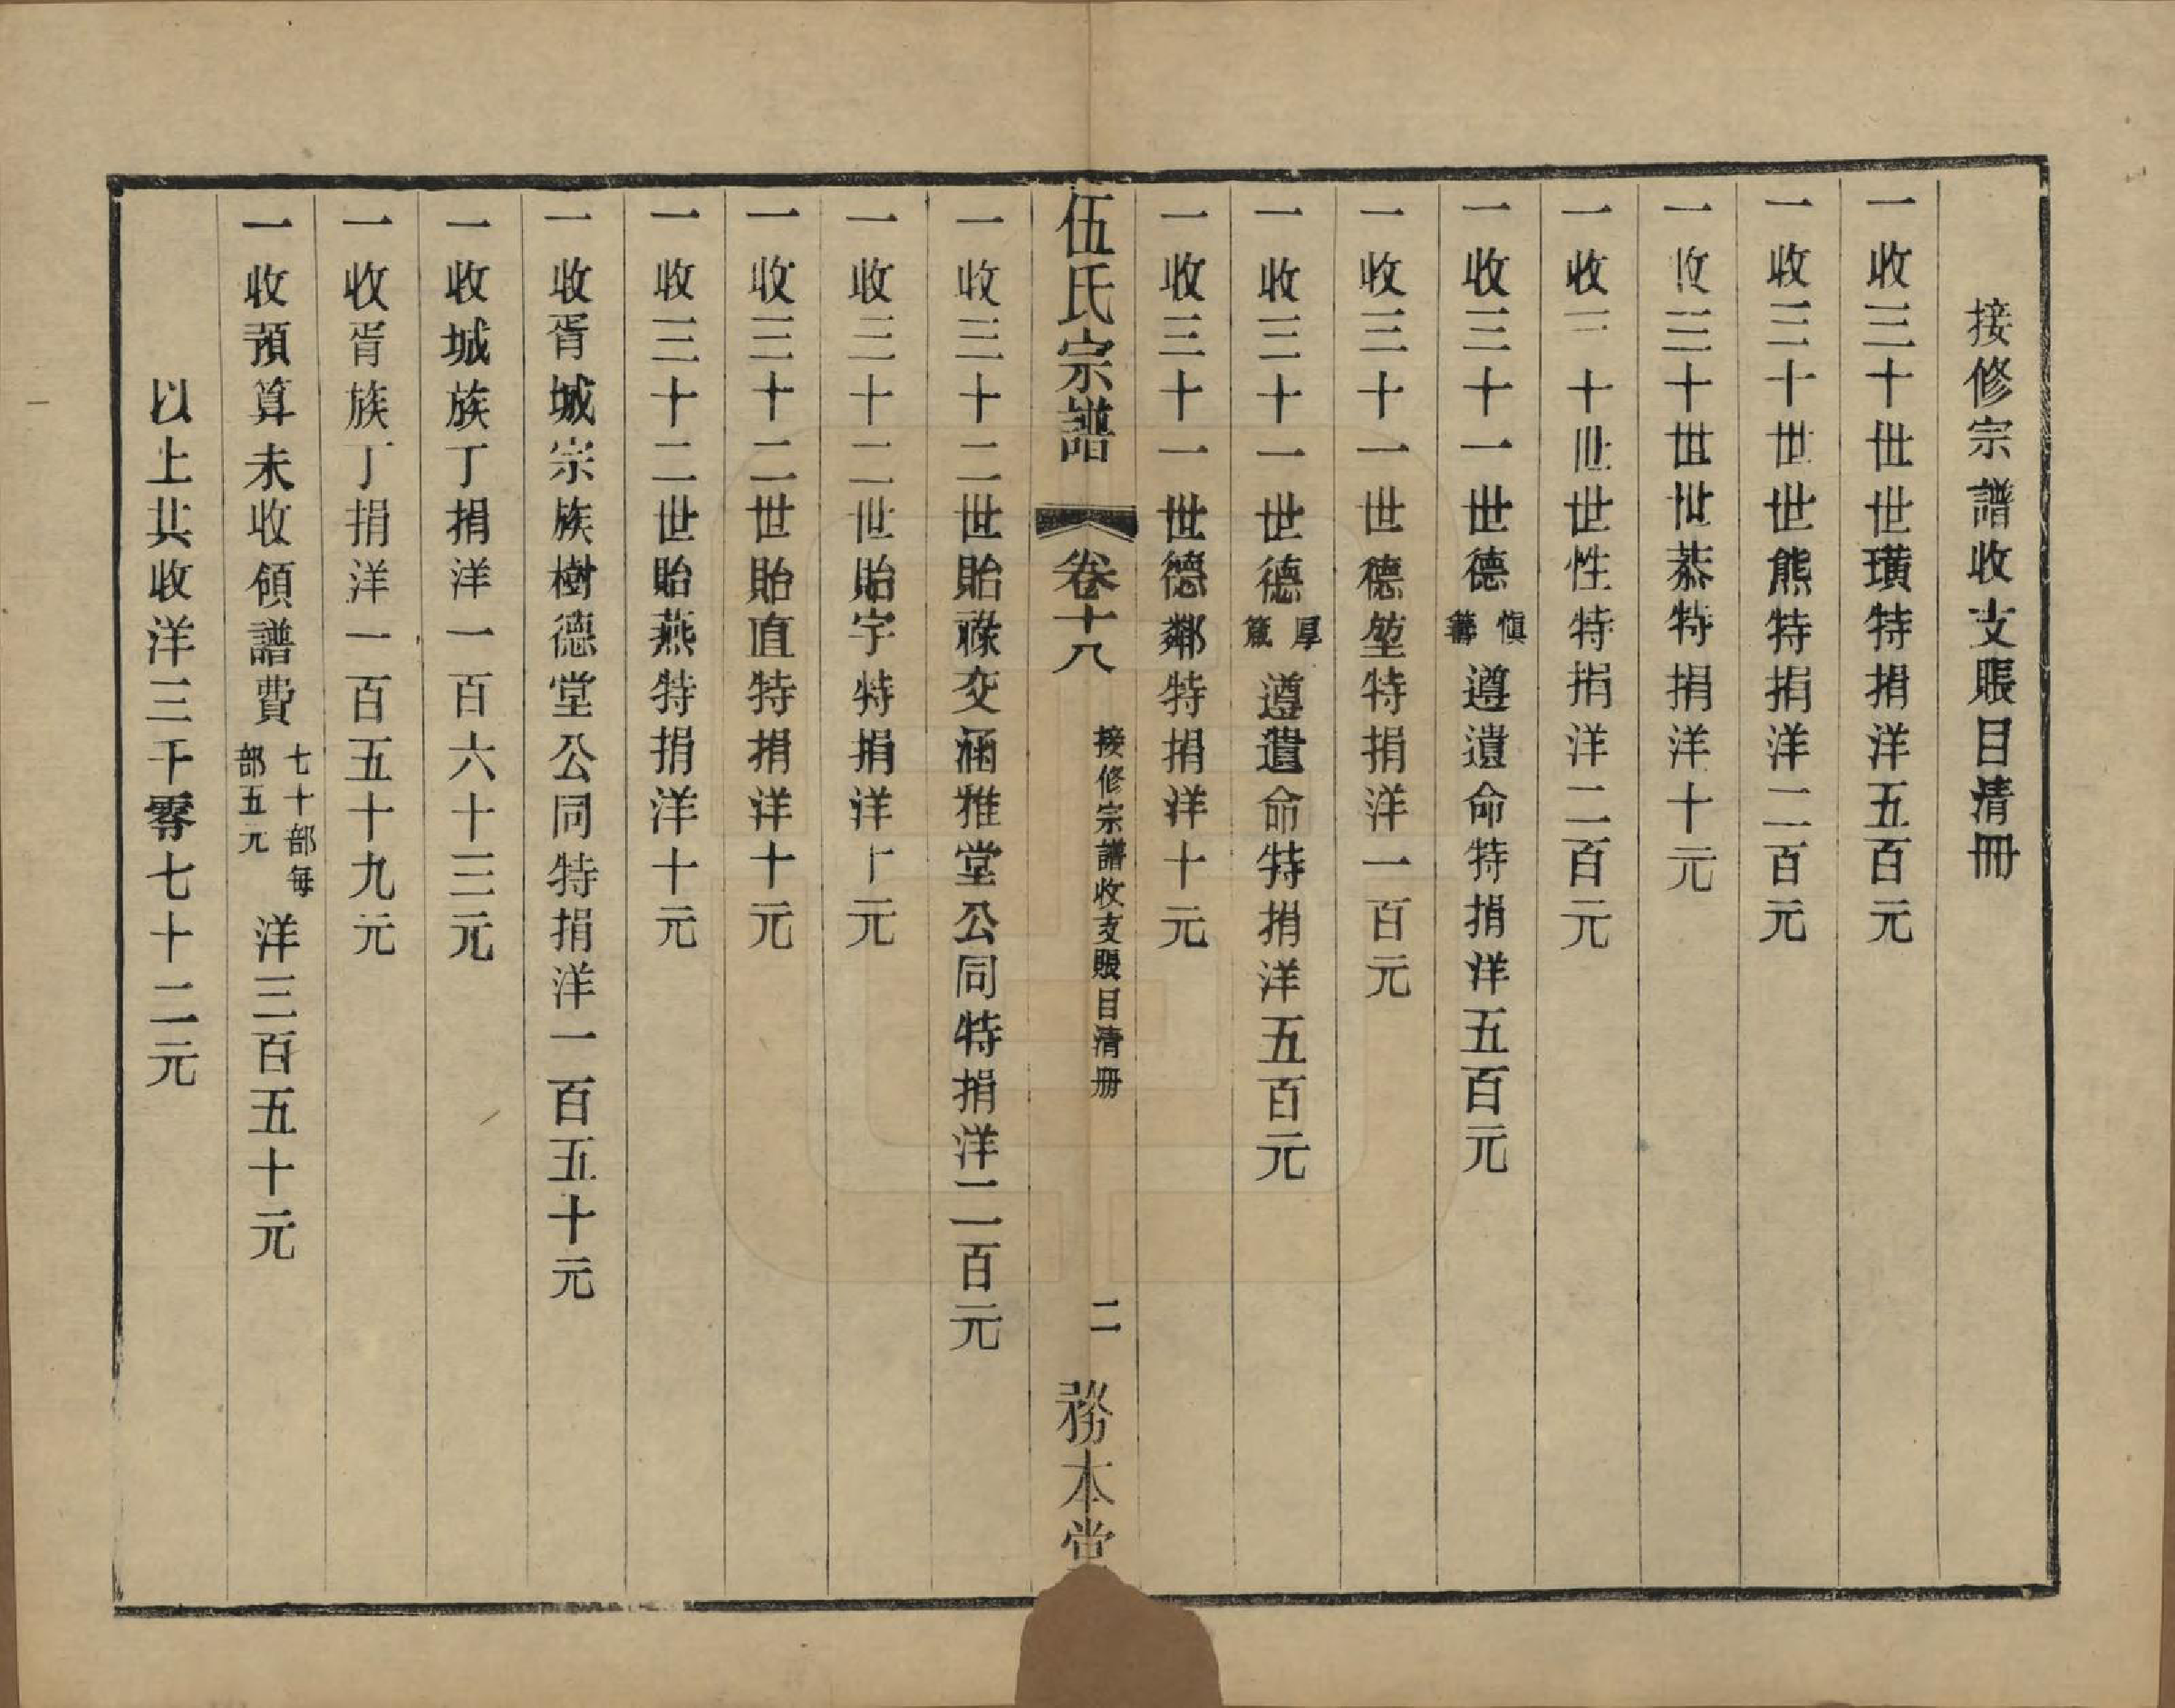 接修宗譜收支賬目清冊
一收三十世世璜特捐洋五百元
一收三十世世熊特捐洋二百元
一收三十世世恭特捐洋十元
一收三十世世性特捐洋二百元
一收三十一世德慎籌遵遺命特捐洋五百元
一收三十一世德堃特捐洋一百元
一收三十一世德厚箴遵遺命特捐洋五百元
一收三十一世德鄰特捐洋十元
伍氏宗譜 卷十八 接修宗譜收支賬目清冊 二 務本堂
一收三十二世貽祿交涵雅堂公同特捐洋二百元
一收三十二世貽宇特捐洋十元
一收三十二世貽直特捐洋十元
一收三十二世貽燕特捐洋十元
一收胥城宗族樹德堂公同特捐洋一百五十元
一收城族丁捐洋一百六十三元
一收胥族丁捐洋一百五十九元
一收預算未收領譜費七十部每部五元洋三百五十元
以上共收洋三千零七十二元